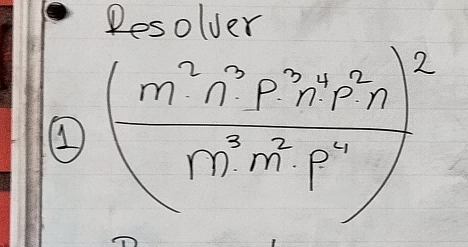 Resolver
① (m²·n³·p·³n⁴·p²·n / m³·m²·p⁴)²